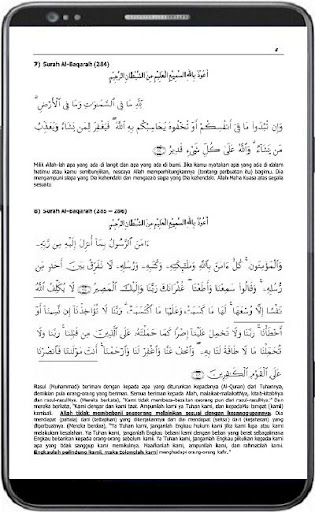 4
7) Surah Al-Baqarah (284)
أَعُوذُ بِاللَّهِ السَّمِيعِ الْعَلِيمِ مِنَ الشَّيْطَانِ الرَّجِيمِ
لِّلَّهِ مَا فِي ٱلسَّمَٰوَٰتِ وَمَا فِي ٱلْأَرْضِ ۗ
وَإِن تُبْدُوا۟ مَا فِىٓ أَنفُسِكُمْ أَوْ تُخْفُوهُ يُحَاسِبْكُم بِهِ ٱللَّهُ ۖ فَيَغْفِرُ لِمَن يَشَآءُ وَيُعَذِّبُ
مَن يَشَآءُ ۗ وَٱللَّهُ عَلَىٰ كُلِّ شَىْءٍ قَدِيرٌ
Milik Allah-lah apa yang ada di langit dan apa yang ada di bumi. Jika kamu nyatakan apa yang ada di dalam
hatimu atau kamu sembunyikan, nescaya Allah memperhitungkannya (tentang perbuatan itu) bagimu. Dia
mengampuni siapa yang Dia kehendaki dan mengazab siapa yang Dia kehendaki. Allah Maha Kuasa atas segala
sesuatu
8) Surah Al-Baqarah (285 – 286)
أَعُوذُ بِاللَّهِ السَّمِيعِ الْعَلِيمِ مِنَ الشَّيْطَانِ الرَّجِيمِ
ءَامَنَ ٱلرَّسُولُ بِمَآ أُنزِلَ إِلَيْهِ مِن رَّبِّهِۦ
وَٱلْمُؤْمِنُونَ ۚ كُلٌّ ءَامَنَ بِٱللَّهِ وَمَلَٰٓئِكَتِهِۦ وَكُتُبِهِۦ وَرُسُلِهِۦ لَا نُفَرِّقُ بَيْنَ أَحَدٍ
مِّن رُّسُلِهِۦ ۚ وَقَالُوا۟ سَمِعْنَا وَأَطَعْنَا ۖ غُفْرَانَكَ رَبَّنَا وَإِلَيْكَ ٱلْمَصِيرُ لَا يُكَلِّفُ ٱللَّهُ
نَفْسًا إِلَّا وُسْعَهَا ۚ لَهَا مَا كَسَبَتْ وَعَلَيْهَا مَا ٱكْتَسَبَتْ ۗ رَبَّنَا لَا تُؤَاخِذْنَآ إِن نَّسِينَآ أَوْ
أَخْطَأْنَا ۚ رَبَّنَا وَلَا تَحْمِلْ عَلَيْنَآ إِصْرًا كَمَا حَمَلْتَهُۥ عَلَى ٱلَّذِينَ مِن قَبْلِنَا ۚ رَبَّنَا وَلَا
تُحَمِّلْنَا مَا لَا طَاقَةَ لَنَا بِهِۦ ۖ وَٱعْفُ عَنَّا وَٱغْفِرْ لَنَا وَٱرْحَمْنَآ ۚ أَنتَ مَوْلَىٰنَا فَٱنصُرْنَا
عَلَى ٱلْقَوْمِ ٱلْكَٰفِرِينَ
Rasul (Muhammad) beriman dengan kepada apa yang diturunkan kepadanya (Al-Quran) dari Tuhannya,
demikian pula orang-orang yang beriman. Semua beriman kepada Allah, malaikat-malaikatNya, kitab-kitabNya
dan rasul-rasulNya. (Mereka berkata), "Kami tidak membeza-bezakan seorang pun dari rasul-rasulNya." Dan
mereka berkata, "Kami dengar dan kami taat. Ampunilah kami ya Tuhan kami, dan kepadaMu tempat (kami)
kembali". Allah tidak membebani seseorang melainkan sesuai dengan kesanggupannya. Dia
mendapat (pahala) dari (kebajikan) yang dikerjakannya dan dia mendapat (siksa) dari (kejahatan) yang
diperbuatnya. (Mereka berdoa), "Ya Tuhan kami, janganlah Engkau hukum kami jika kami lupa atau kami
melakukan kesalahan. Ya Tuhan kami, janganlah Engkau bebani kami dengan beban yang berat sebagaimana
Engkau bebankan kepada orang-orang sebelum kami. Ya Tuhan kami, janganlah Engkau pikulkan kepada kami
apa yang tidak sanggup kami memikulnya. Maafkanlah kami, ampunilah kami, dan rahmatilah kami.
Engkaulah pelindung kami, maka tolonglah kami menghadapi orang-orang kafir".